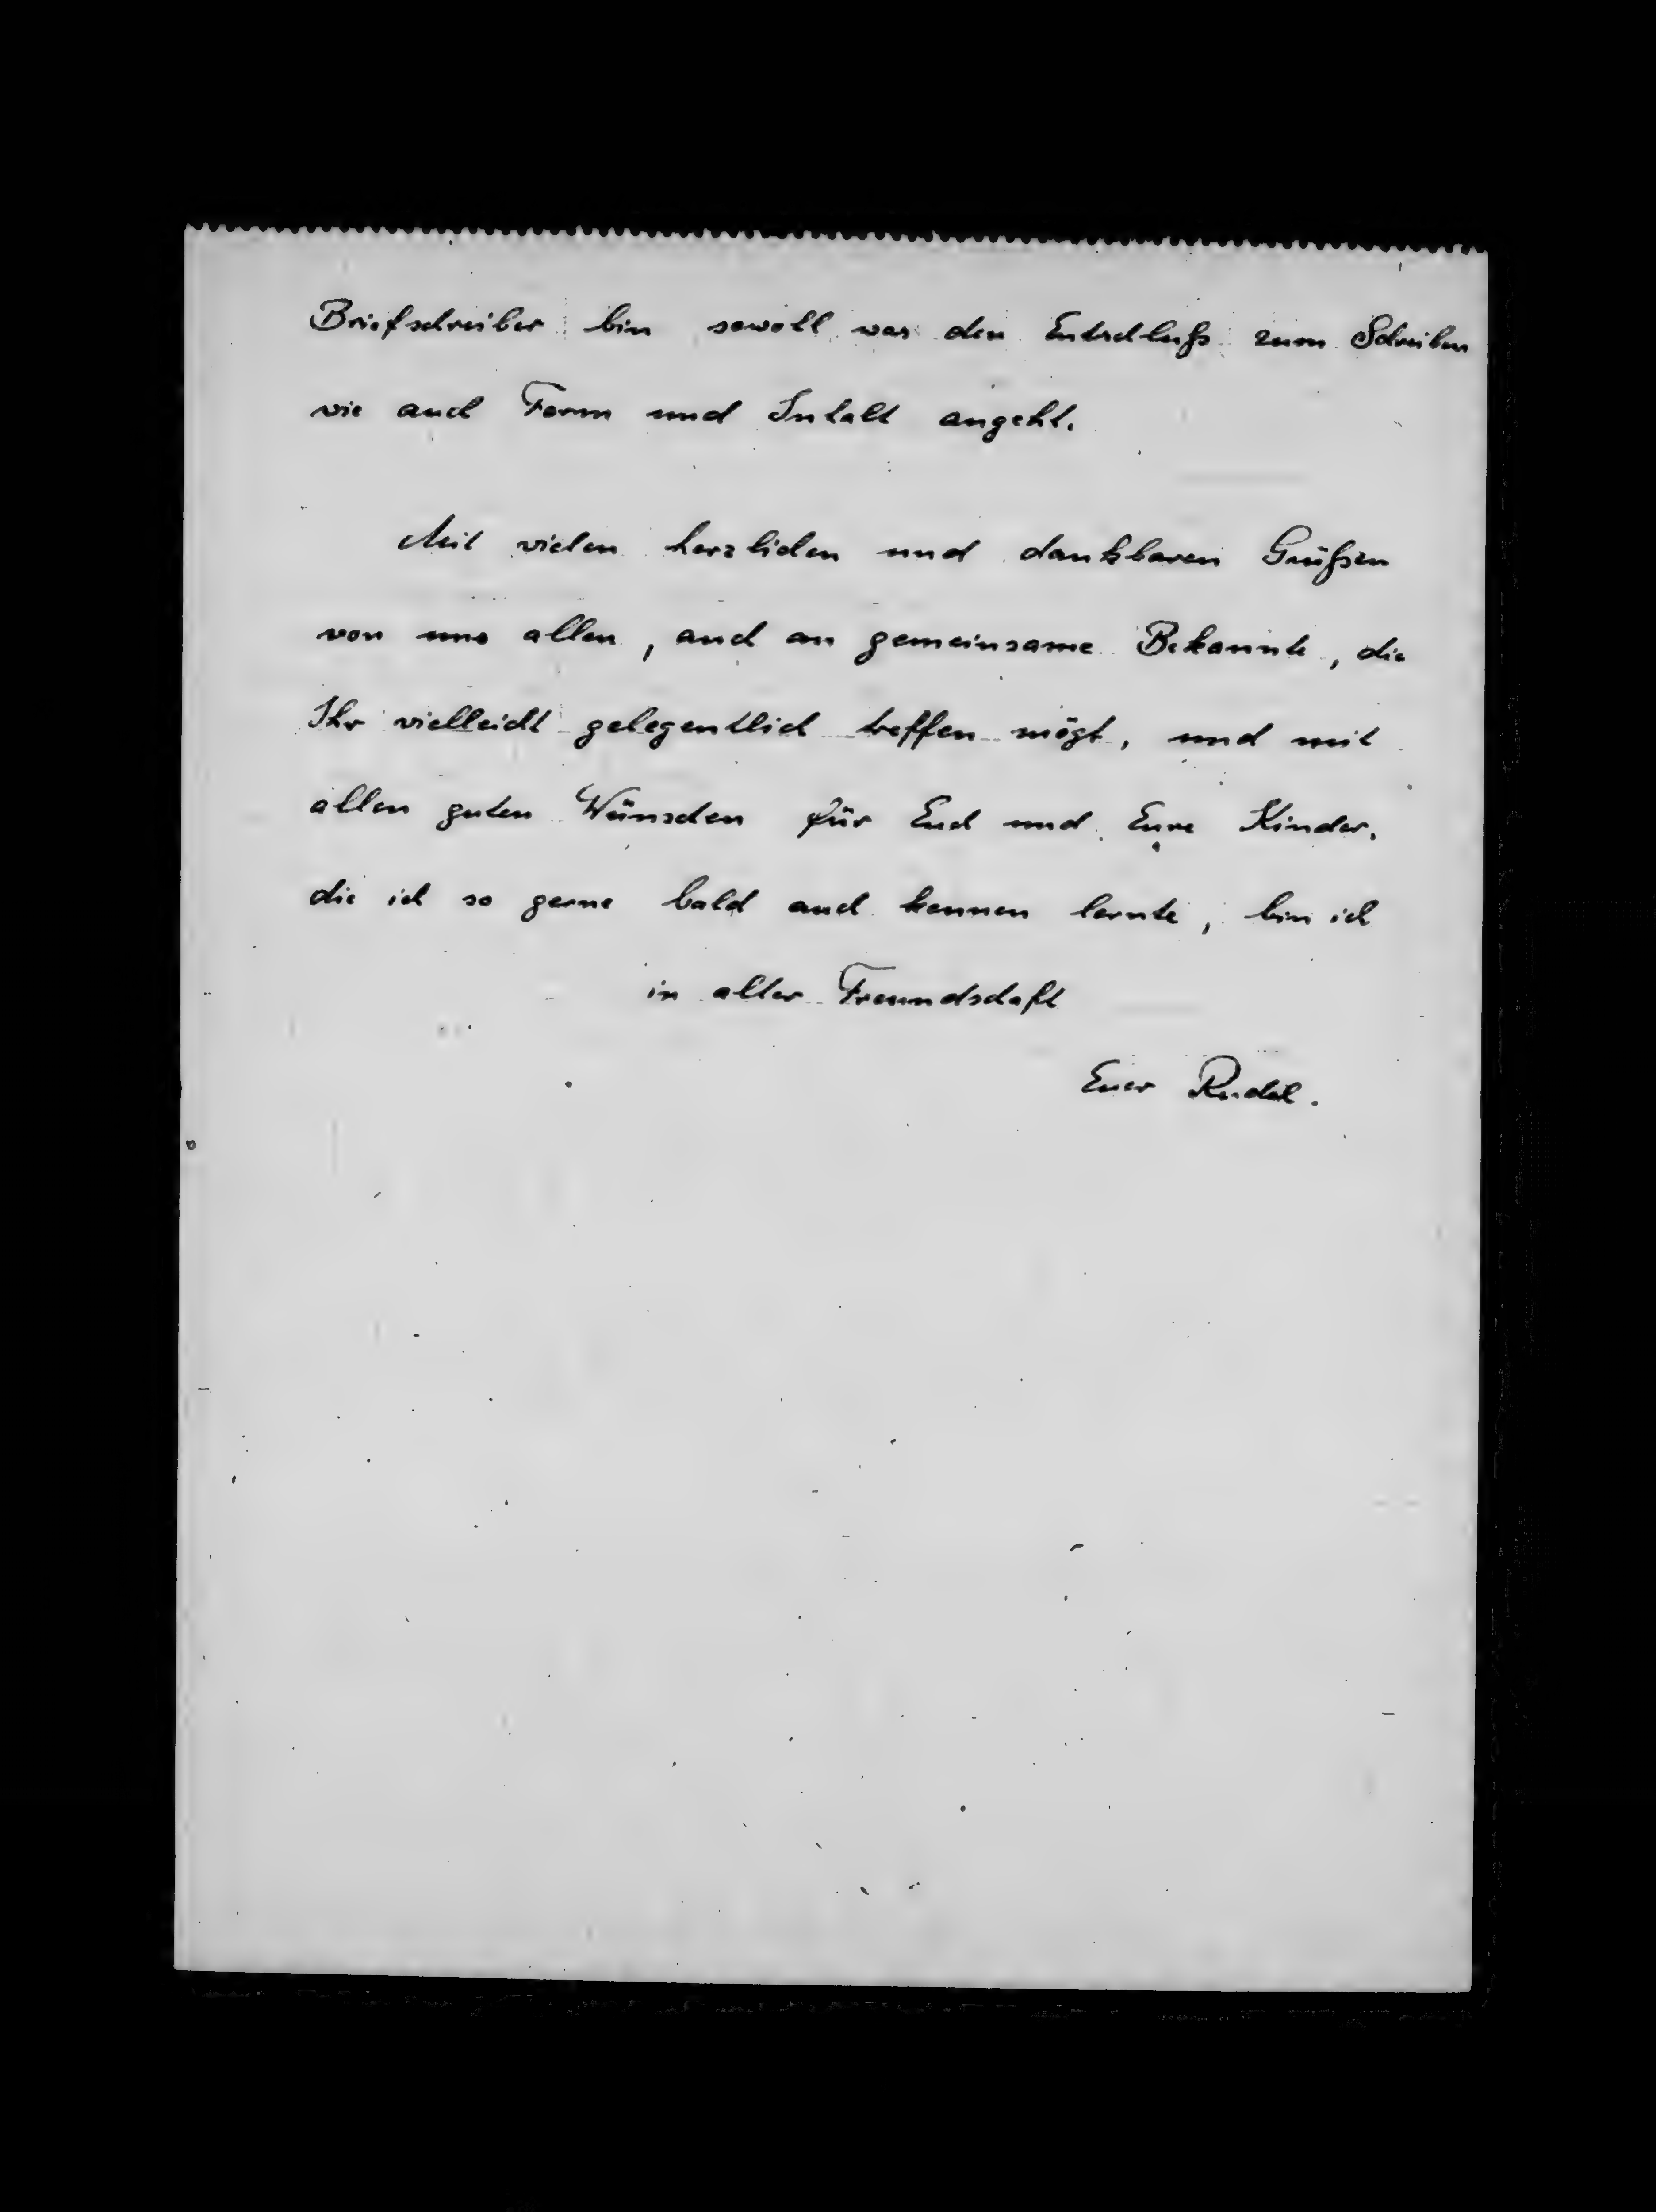 Briefschreiber bin sowohl was den Entschluß zum Schreiben
wie auch Form und Inhalt angeht.
Mit vielen herzlichen und dankbaren Grüßen
von uns allen, auch an gemeinsame Bekannte, die
Ihr vielleicht gelegentlich treffen mögt, und mit
allen guten Wünschen für Euch und Eure Kinder,
die ich so gerne bald auch kennen lernte, bin ich
in alter Freundschaft
Euer